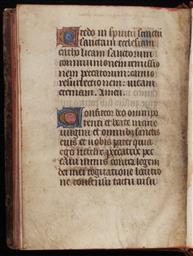 Credo in spiritu sancti
sanctam ecclesiam
catholicam sanctorum
communionem remissio
nem peccatorum carnis
resurrectionem vitam
eternam Amen
Confiteor deo omnipo
tenti et beate marie
virgini et omnibus sanctis
eius et vobis pater quia
ego peccavi
mentis contra legem
dei mei cogitatione locutio
ne consensu tactu visu